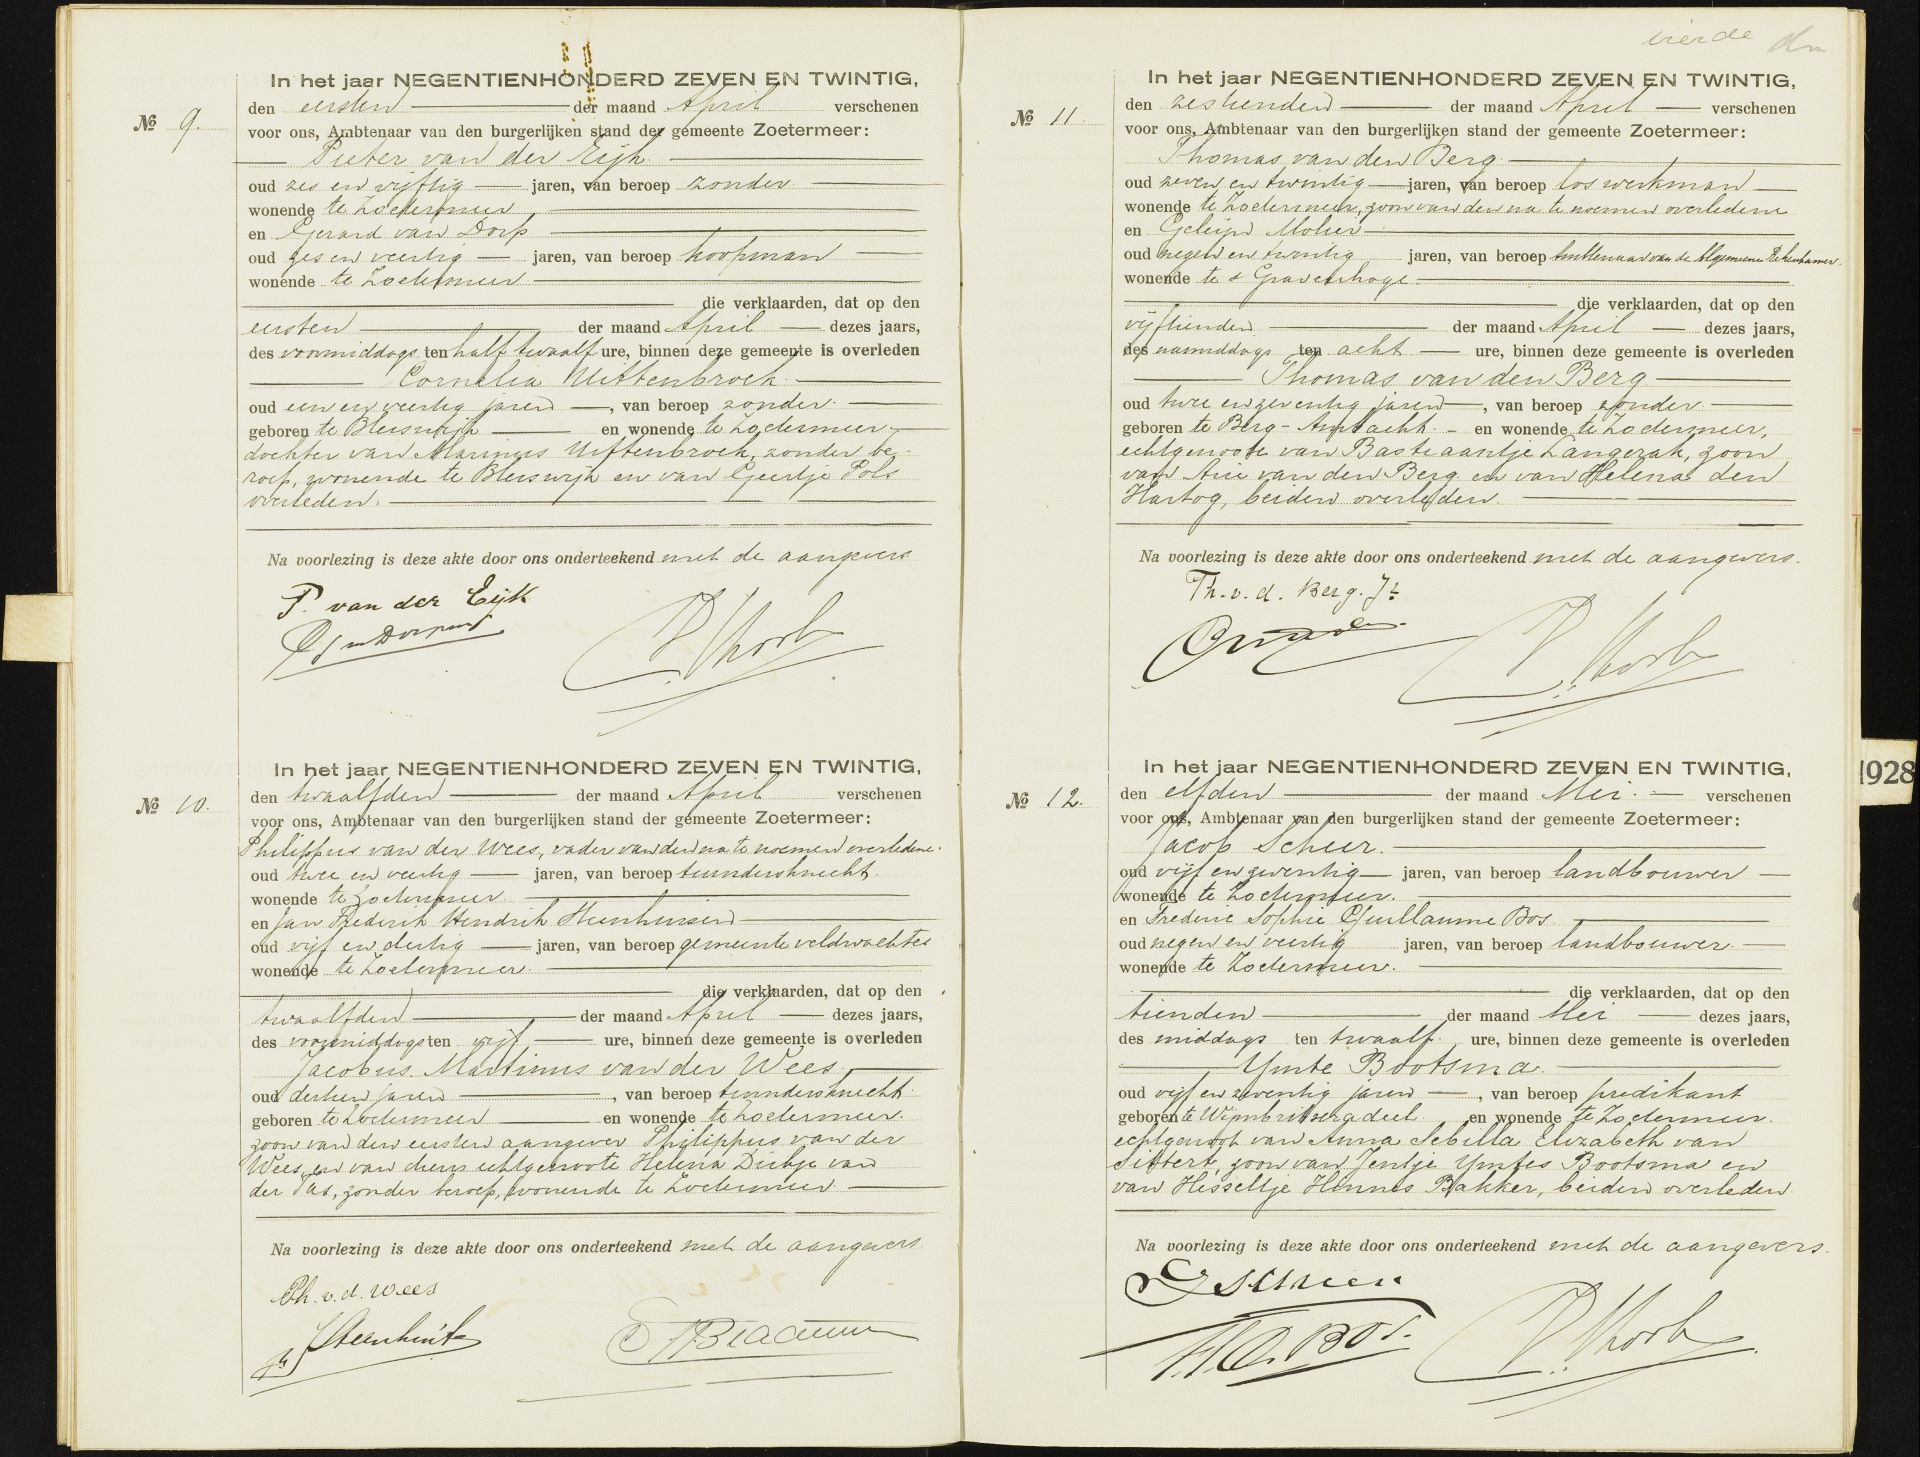 In het jaar NEGENTIENHONDERD ZEVEN EN TWINTIG,
№ 9.
den eersten der maand April verschenen
voor ons, Ambtenaar van den burgerlijken stand der gemeente Zoetermeer:
Pieter van der Eijk
oud zes en vijftig jaren, van beroep zonder
wonende te Zoetermeer
en Gerard van Dorp
oud zes en veertig jaren, van beroep koopman
wonende te Zoetermeer
die verklaarden, dat op den
eersten der maand April dezes jaars,
des voormiddags ten half twaalf ure, binnen deze gemeente is overleden
Cornelia Uittenbroek
oud een en veertig jaren, van beroep zonder
geboren te Bleiswijk en wonende te Zoetermeer
dochter van Marinus Uittenbroek, zonder be-
roep, wonende te Bleiswijk en van Geertje Pols
overleden.
Na voorlezing is deze akte door ons onderteekend met de aangevers
P. van der Eijk
In het jaar NEGENTIENHONDERD ZEVEN EN TWINTIG,
№ 10.
den twaalfden der maand April verschenen
voor ons, Ambtenaar van den burgerlijken stand der gemeente Zoetermeer:
Philippus van der Wees, vader van den na te noemen overledene.
oud twee en veertig jaren, van beroep tuindersknecht.
wonende te Zoetermeer
en Jan Frederik Hendrik
oud vijf en dertig jaren, van beroep gemeente veldwachter
wonende te Zoetermeer.
die verklaarden, dat op den
twaalfden der maand April dezes jaars,
des voormiddags ten vijf ure, binnen deze gemeente is overleden
Jacobus Martinus van der Wees
oud dertien jaren, van beroep tuindersknecht.
geboren te Zoetermeer en wonende te Zoetermeer.
zoon van den eersten aangever Philippus van der
Wees en van diens echtgenoote Helena Dirkje van
der Tas, zonder beroep, wonende te Zoetermeer
Na voorlezing is deze akte door ons onderteekend met de aangevers
Ph. v. d. Wees
vierde
In het jaar NEGENTIENHONDERD ZEVEN EN TWINTIG,
№ 11.
den zestienden der maand April verschenen
voor ons, Ambtenaar van den burgerlijken stand der gemeente Zoetermeer:
Thomas van den Berg
oud zeven en twintig jaren, van beroep los werkman
wonende te Zoetermeer, zoon van den na te noemen overledene
en Gelijn
oud negen en twintig jaren, van beroep ambtenaar van de Algemeene Rekenkamer.
wonende te 's Gravenhage
die verklaarden, dat op den
vijftienden der maand April dezes jaars,
des namiddags ten acht ure, binnen deze gemeente is overleden
Thomas van den Berg
oud twee en zeventig jaren, van beroep zonder
geboren te Berg-Ambacht en wonende te Zoetermeer,
echtgenoote van Bastiaantje Langerak, zoon
van Arie van den Berg en van Helena den
Hartog, beiden overleden.
Na voorlezing is deze akte door ons onderteekend met de aangevers.
Th. v. d. Berg. Jr
In het jaar NEGENTIENHONDERD ZEVEN EN TWINTIG,
№ 12.
den elfden der maand Mei verschenen
voor ons, Ambtenaar van den burgerlijken stand der gemeente Zoetermeer:
Jacob Scheer.
oud vijf en zeventig jaren, van beroep landbouwer
wonende te Zoetermeer.
en Frederic Sophie Guillaume Bos
oud negen en veertig jaren, van beroep landbouwer.
wonende te Zoetermeer.
die verklaarden, dat op den
tienden der maand Mei dezes jaars,
des middags ten twaalf ure, binnen deze gemeente is overleden
Ymte Bootsma
oud vijf en zeventig jaren, van beroep predikant
geboren te Wijmbritseradeel en wonende te Zoetermeer.
echtgenoot van Anna Sebilla Elizabeth van
Sittert, zoon van Jentje Ymtes Bootsma en
van Hisseltje Hinnes Bakker, beiden overleden.
Na voorlezing is deze akte door ons onderteekend met de aangevers.
1928